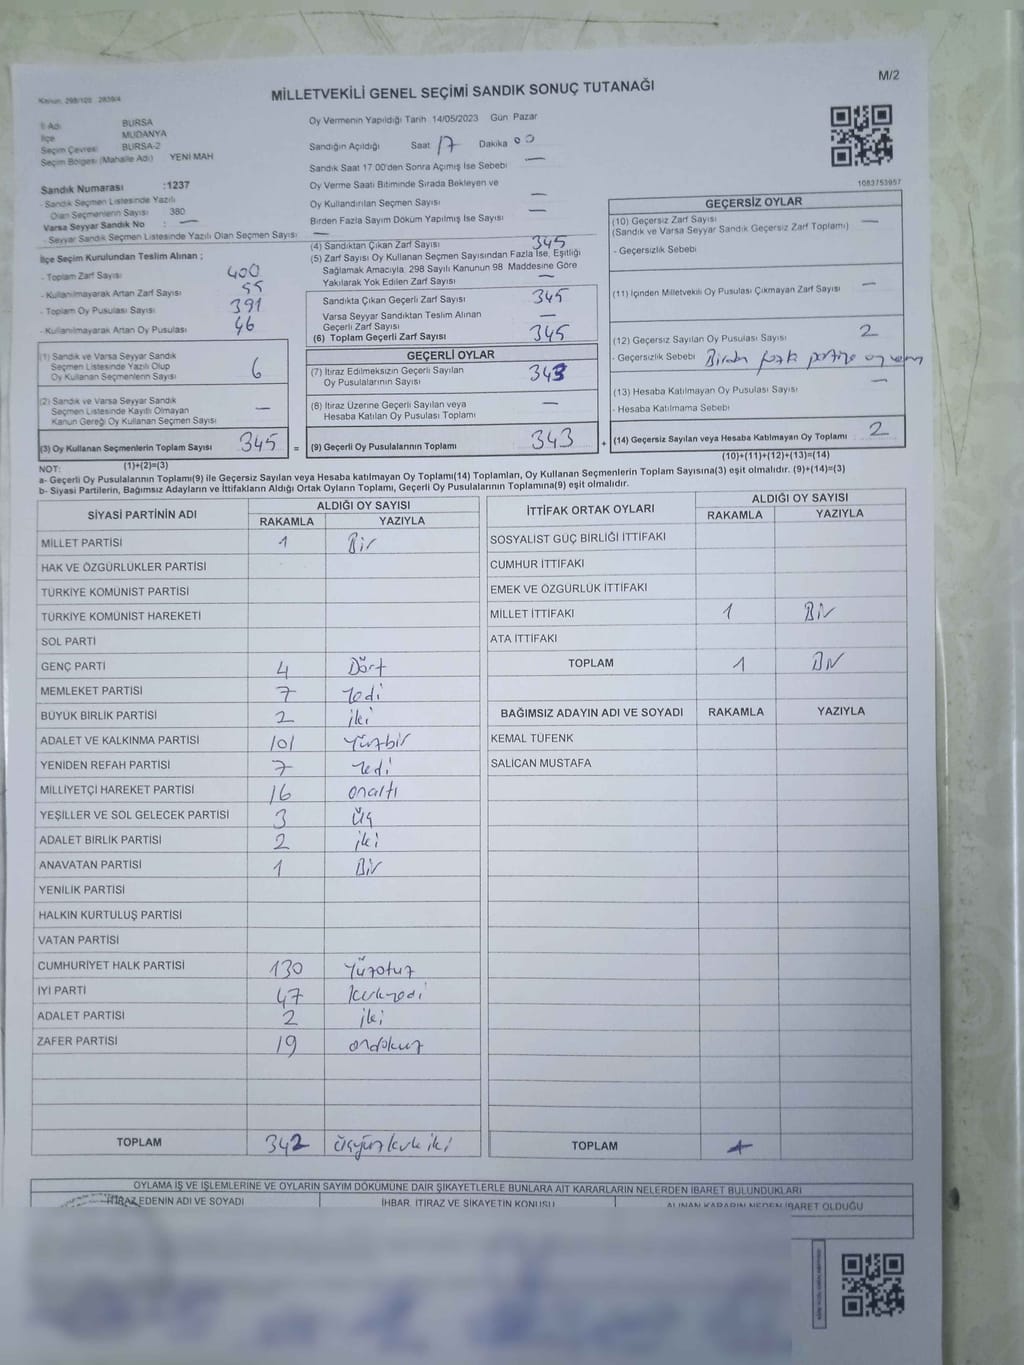 M/2
Kanun: 298/105 2839/4
MİLLETVEKİLİ GENEL SEÇİMİ SANDIK SONUÇ TUTANAĞI
İl Adı BURSA
İlçe MUDANYA
Seçim Çevresi BURSA-2
Seçim Bölgesi (Mahalle Adı) YENİ MAH
Sandık Numarası :1237
- Sandık Seçmen Listesinde Yazılı
Olan Seçmenlerin Sayısı 380
Varsa Seyyar Sandık No : —
- Seyyar Sandık Seçmen Listesinde Yazılı Olan Seçmen Sayısı : —
Oy Vermenin Yapıldığı Tarih 14/05/2023 Gün Pazar
Sandığın Açıldığı Saat 17 Dakika 00
Sandık Saat 17 00'den Sonra Açımış İse Sebebi —
Oy Verme Saati Bitiminde Sırada Bekleyen ve
Oy Kullandırılan Seçmen Sayısı —
Birden Fazla Sayım Döküm Yapılmış İse Sayısı —
1083753957
İlçe Seçim Kurulundan Teslim Alınan ;
- Toplam Zarf Sayısı 400
- Kullanılmayarak Artan Zarf Sayısı 55
- Toplam Oy Pusulası Sayısı 391
- Kullanılmayarak Artan Oy Pusulası 46
(1) Sandık ve Varsa Seyyar Sandık
Seçmen Listesinde Yazılı Olup
Oy Kullanan Seçmenlerin Sayısı 6
(2) Sandık ve Varsa Seyyar Sandık
Seçmen Listesinde Kayıtlı Olmayan
Kanun Gereği Oy Kullanan Seçmen Sayısı —
(3) Oy Kullanan Seçmenlerin Toplam Sayısı 345 =
(1)+(2)=(3)
(4) Sandıktan Çıkan Zarf Sayısı 345
(5) Zarf Sayısı Oy Kullanan Seçmen Sayısından Fazla İse, Eşitliği
Sağlamak Amacıyla, 298 Sayılı Kanunun 98 Maddesine Göre
Yakılarak Yok Edilen Zarf Sayısı —
Sandıkta Çıkan Geçerli Zarf Sayısı 345
Varsa Seyyar Sandıktan Teslim Alınan
Geçerli Zarf Sayısı —
(6) Toplam Geçerli Zarf Sayısı 345
GEÇERLİ OYLAR
(7) İtiraz Edilmeksizin Geçerli Sayılan
Oy Pusulalarının Sayısı 343
(8) İtiraz Üzerine Geçerli Sayılan veya
Hesaba Katılan Oy Pusulası Toplamı —
(9) Geçerli Oy Pusulalarının Toplamı 343 +
GEÇERSİZ OYLAR
(10) Geçersiz Zarf Sayısı —
(Sandık ve Varsa Seyyar Sandık Geçersiz Zarf Toplamı)
- Geçersizlik Sebebi
(11) İçinden Milletvekili Oy Pusulası Çıkmayan Zarf Sayısı —
(12) Geçersiz Sayılan Oy Pusulası Sayısı 2
- Geçersizlik Sebebi Birden fazla partiye oy
(13) Hesaba Katılmayan Oy Pusulası Sayısı —
- Hesaba Katılmama Sebebi
(14) Geçersiz Sayılan veya Hesaba Katılmayan Oy Toplamı 2
(10)+(11)+(12)+(13)=(14)
NOT:
a- Geçerli Oy Pusulalarının Toplamı(9) ile Geçersiz Sayılan veya Hesaba katılmayan Oy Toplamı(14) Toplamları, Oy Kullanan Seçmenlerin Toplam Sayısına(3) eşit olmalıdır. (9)+(14)=(3)
b- Siyasi Partilerin, Bağımsız Adayların ve İttifakların Aldığı Ortak Oyların Toplamı, Geçerli Oy Pusulalarının Toplamına(9) eşit olmalıdır.
SİYASİ PARTİNİN ADI ALDIĞI OY SAYISI
RAKAMLA YAZIYLA
MİLLET PARTİSİ 1 Bir
HAK VE ÖZGÜRLÜKLER PARTİSİ
TÜRKİYE KOMÜNİST PARTİSİ
TÜRKİYE KOMÜNİST HAREKETİ
SOL PARTİ
GENÇ PARTİ 4 Dört
MEMLEKET PARTİSİ 7 Yedi
BÜYÜK BİRLİK PARTİSİ 2 iki
ADALET VE KALKINMA PARTİSİ 101 Yüzbir
YENİDEN REFAH PARTİSİ 7 Yedi
MİLLİYETÇİ HAREKET PARTİSİ 16 onaltı
YEŞİLLER VE SOL GELECEK PARTİSİ 3 Üç
ADALET BİRLİK PARTİSİ 2 iki
ANAVATAN PARTİSİ 1 Bir
YENİLİK PARTİSİ
HALKIN KURTULUŞ PARTİSİ
VATAN PARTİSİ
CUMHURİYET HALK PARTİSİ 130 Yüzotuz
İYİ PARTİ 47 kırkyedi
ADALET PARTİSİ 2 iki
ZAFER PARTİSİ 19 ondokuz
TOPLAM 342 Üçyüzkırkiki
İTTİFAK ORTAK OYLARI ALDIĞI OY SAYISI
RAKAMLA YAZIYLA
SOSYALİST GÜÇ BİRLİĞİ İTTİFAKI
CUMHUR İTTİFAKI
EMEK VE ÖZGÜRLÜK İTTİFAKI
MİLLET İTTİFAKI 1 Bir
ATA İTTİFAKI
TOPLAM 1 Bir
BAĞIMSIZ ADAYIN ADI VE SOYADI RAKAMLA YAZIYLA
KEMAL TÜFENK
SALİCAN MUSTAFA
TOPLAM
OYLAMA İŞ VE İŞLEMLERİNE VE OYLARIN SAYIM DÖKÜMÜNE DAİR ŞİKAYETLERLE BUNLARA AİT KARARLARIN NELERDEN İBARET BULUNDUKLARI
İTİRAZ EDENİN ADI VE SOYADI İHBAR, İTİRAZ VE ŞİKAYETİN KONUSU ALINAN KARARIN NEDEN İBARET OLDUĞU